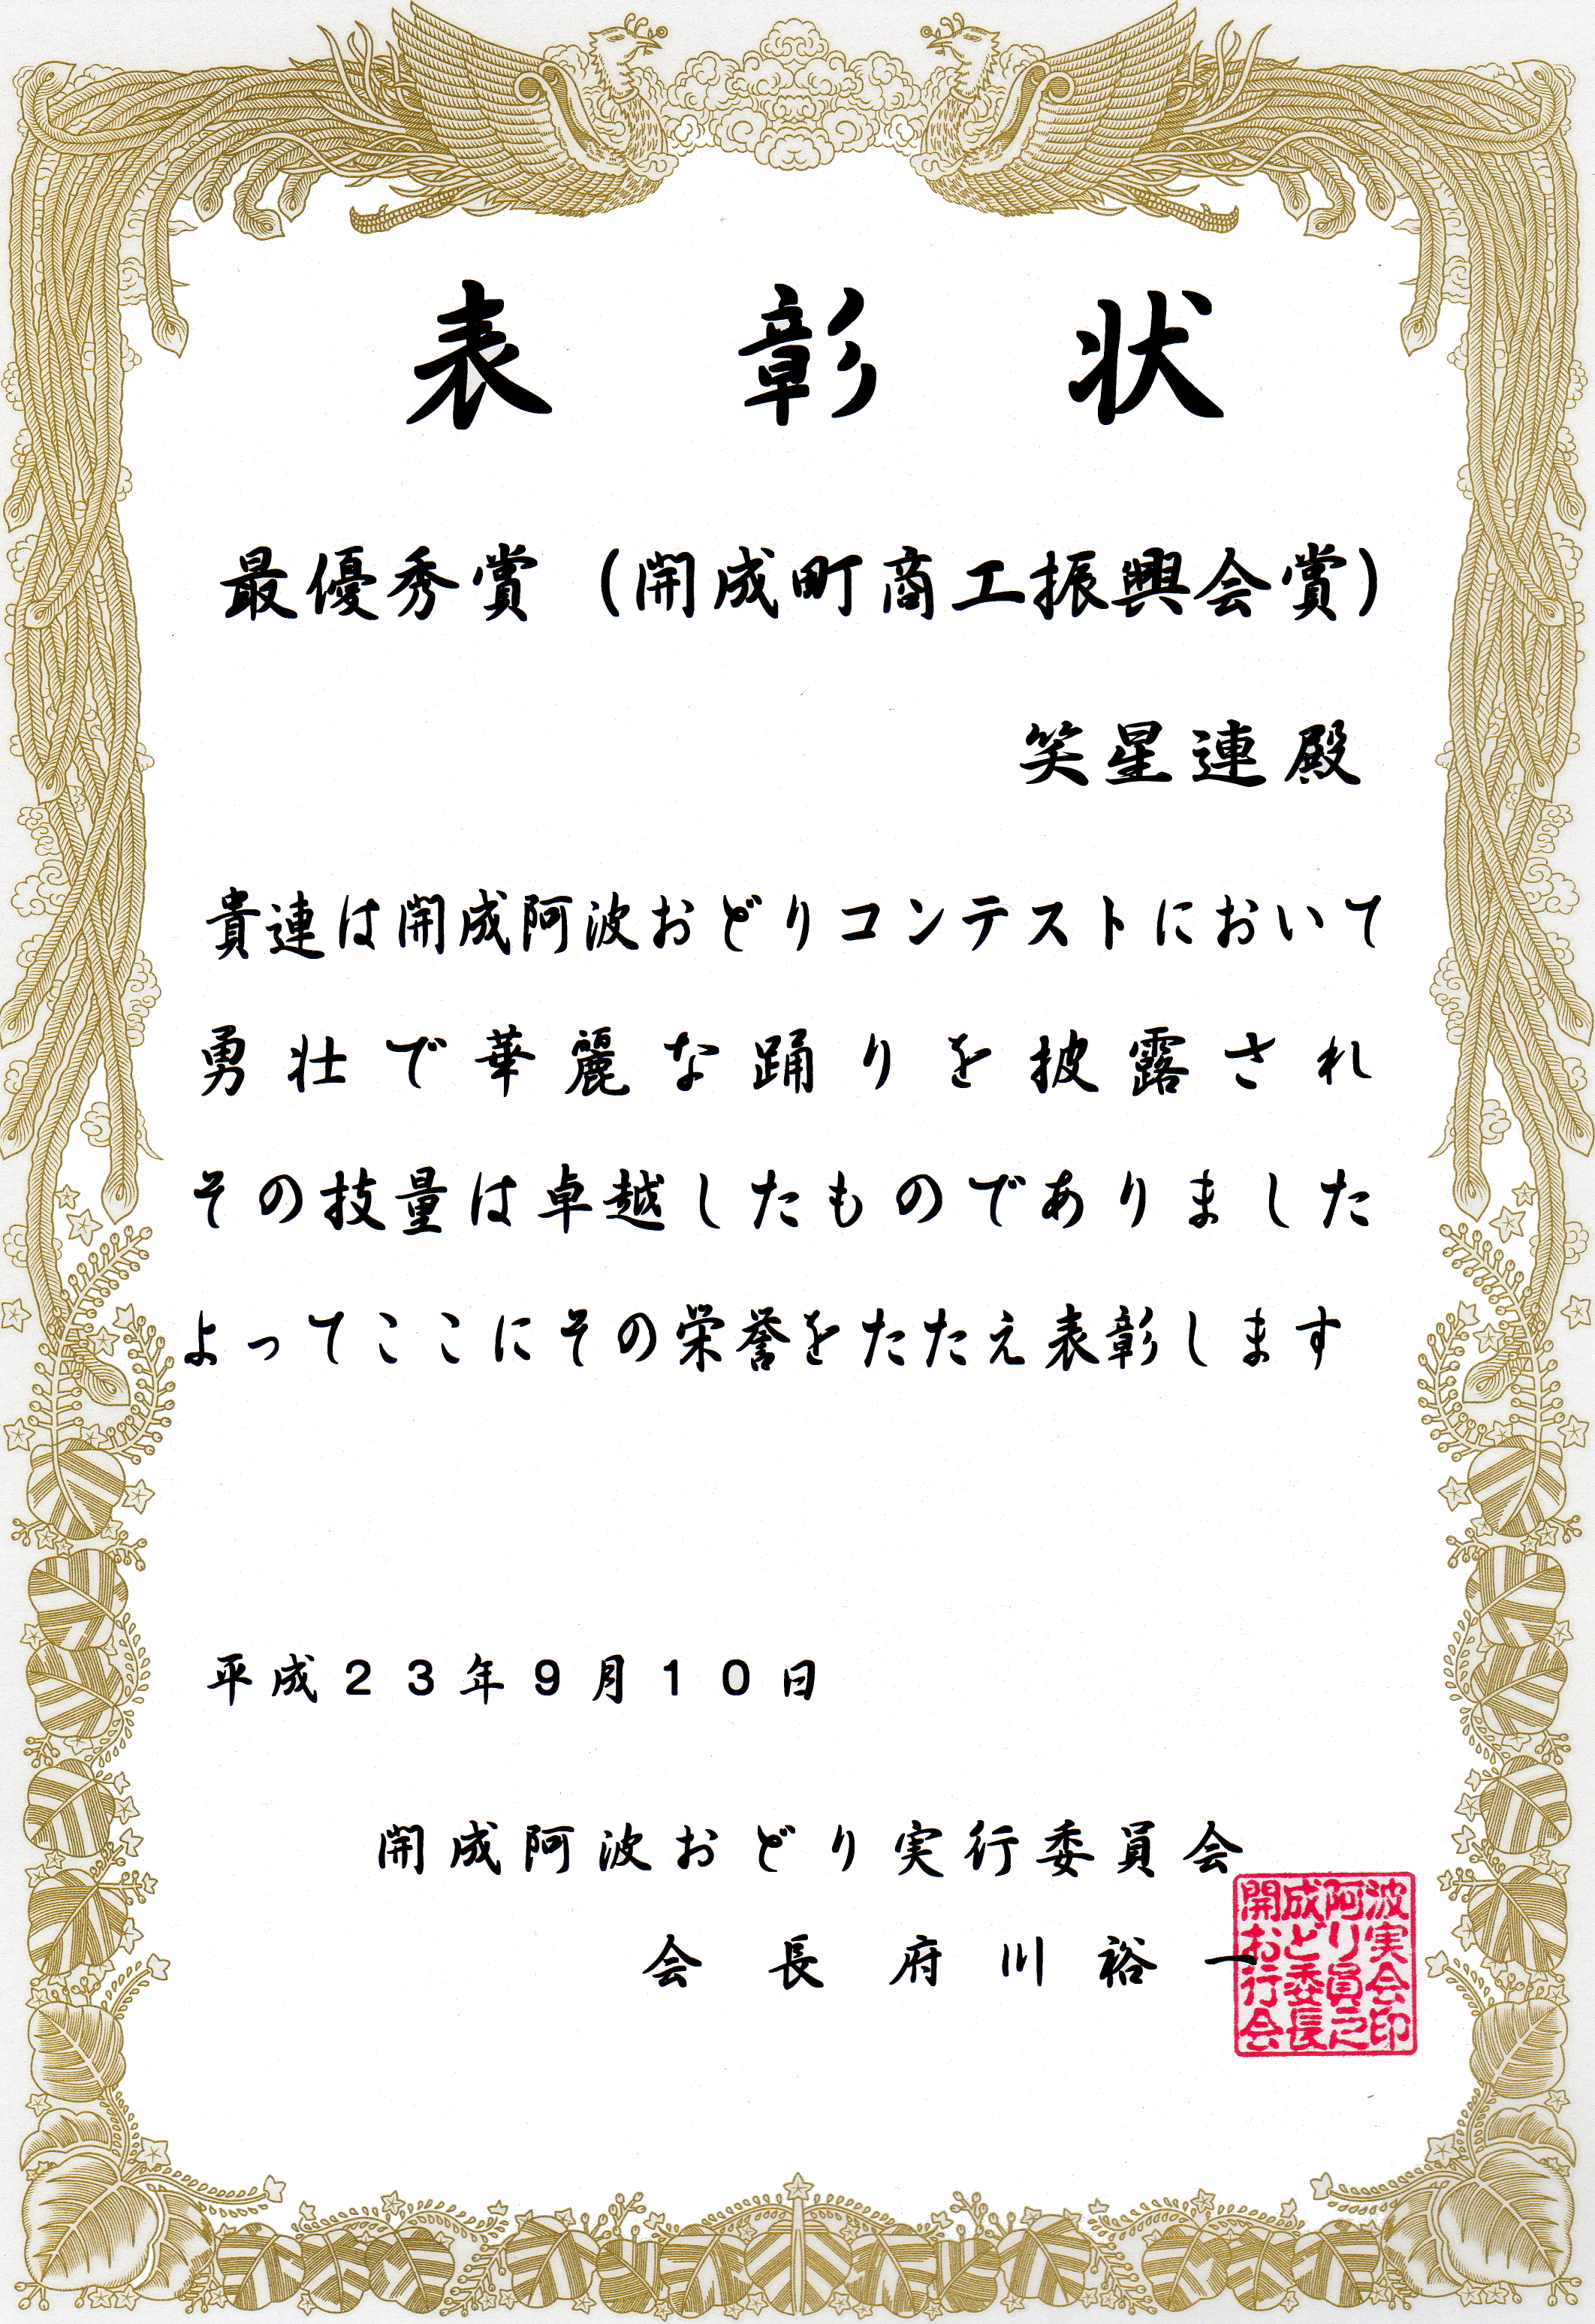 表彰状
最優秀賞（開成町商工振興会賞）
笑星連殿
貴連は開成阿波おどりコンテストにおいて
勇壮で華麗な踊りを披露され
その技量は卓越したものでありました
よってここにその栄誉をたたえ表彰します
平成２３年９月１０日
開成阿波おどり実行委員会
会長府川裕一
開成阿波
おどり実
行委員会
会長之印